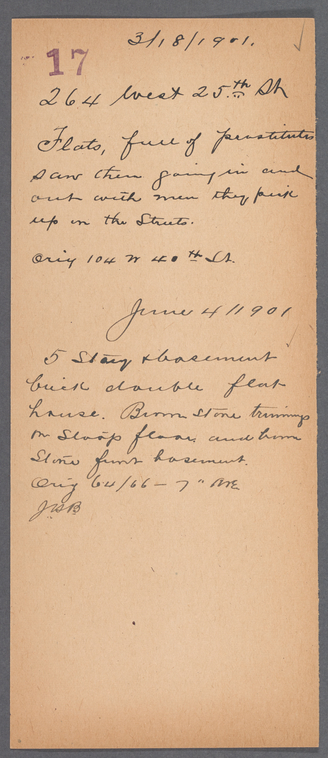 3/18/1901.
17
264 West 25.th St
Flats, full of prostitutes
saw them going in and
out with men they pick
up on the Streets.
Orig 104 W 40th St.
June 4/1901
5 Story & basement
brick double flat
house. Brown Stone trimings
on Stoop floor, and brown
Stone front basement.
Orig 64/66 - 7" Ave
JHB